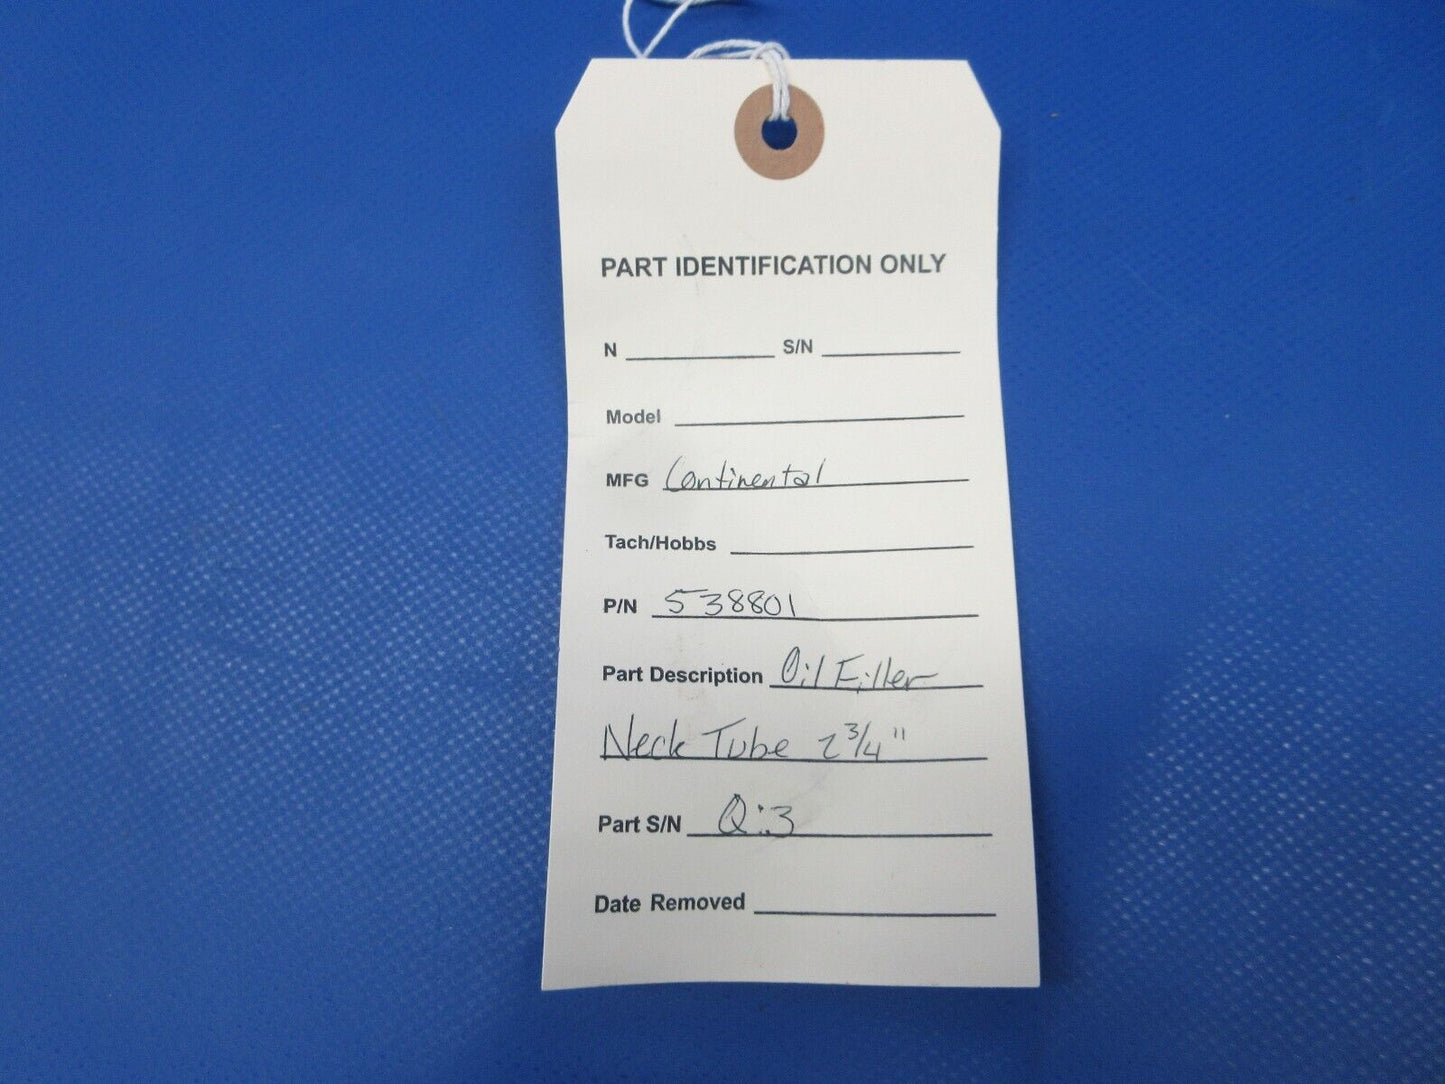 PART IDENTIFICATION ONLY
N S/N
Model
MFG Continental
Tach/Hobbs
P/N 538801
Part Description Oil Filler
Neck Tube 2 3/4"
Part S/N Q:3
Date Removed